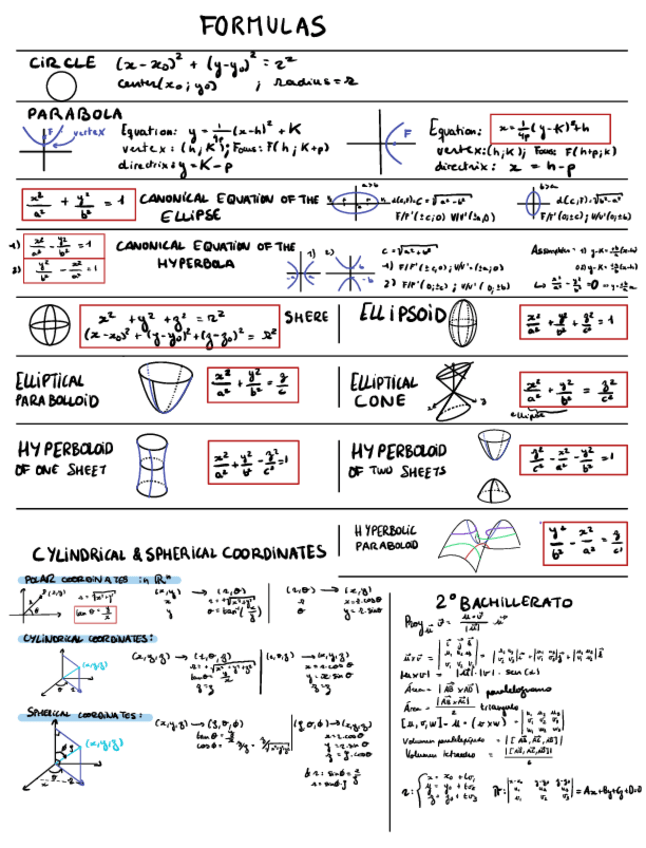 FORMULAS
CIRCLE (x-x₀)² + (y-y₀)² = r²
center (x₀; y₀) ; radius = r
PARABOLA
F vertex
Equation: y = 1/4p (x-h)² + K
vertex: (h; K); Focus: F(h; K+p)
directrix: y = K-p
F
Equation: x = 1/4p (y-K)² + h
vertex: (h; K); Focus: F(h+p; K)
directrix: x = h-p
x²/a² + y²/b² = 1 CANONICAL EQUATION OF THE ELLIPSE
a>b
F/F'(±c; 0) V/V'(±a, 0)
b>a
F/F'(0; ±c); V/V'(0; ±b)
1) x²/a² - y²/b² = 1
2) y²/b² - x²/a² = 1
CANONICAL EQUATION OF THE HYPERBOLA
1) 2)
c = √a²+b²
1) F/F'(±c, 0); V/V'(±a; 0)
2) F/F'(0; ±c); V/V'(0; ±b)
x² + y² + z² = r²
(x-x₀)² + (y-y₀)² + (z-z₀)² = r²
SHERE
ELLIPSOID
x²/a² + y²/b² + z²/c² = 1
ELLIPTICAL PARABOLLOID
x²/a² + y²/b² = z/c
ELLIPTICAL CONE
x²/a² + y²/b² = z²/c²
ellipse
HYPERBOLOID OF ONE SHEET
x²/a² + y²/b² - z²/c² = 1
HYPERBOLOID OF TWO SHEETS
z²/c² - x²/a² - y²/b² = 1
HYPERBOLIC PARABOLOID
y²/b² - x²/a² = z/c
CYLINDRICAL & SPHERICAL COORDINATES
POLAR COORDINATES in ℝⁿ
r = √x²+y²
tan θ = y/x
(x, y) → (r, θ)
(r, θ) → (x, y)
x = r·cosθ
y = r·sinθ
CYLINDRICAL COORDINATES:
(x,y,z)
(x, y, z) → (r, θ, z)
tanθ = y/x
z = z
(r, θ, z) → (x, y, z)
x = r·cosθ
y = r sinθ
z = z
SPHERICAL COORDINATES:
(x,y,z)
tanθ = y/x
2º BACHILLERATO
Área = |AB x AD| paralelogramo
Área = |AB x AD|/2 triangulo
Volumen paralelepípedo = |[AB, AC, AD]|
Volumen tetraedro = |[AB, AC, AD]|/6
r: { x = x₀ + tv₁
y = y₀ + tv₂
z = z₀ + tv₃
= Ax+By+Cz+D=0